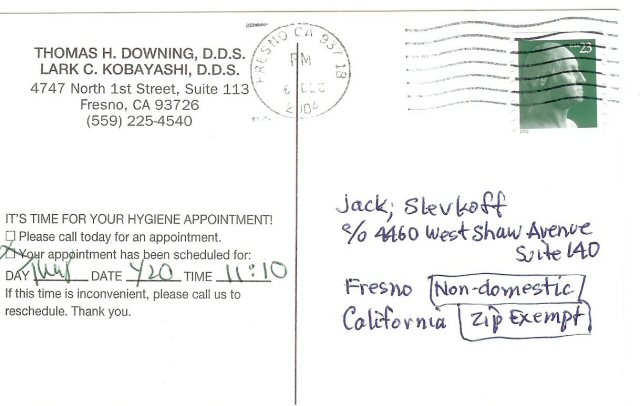 THOMAS H. DOWNING, D.D.S.
LARK C. KOBAYASHI, D.D.S.
4747 North 1st Street, Suite 113
Fresno, CA 93726
(559) 225-4540
FRESNO CA 937 18
PM
6 DEC
2004
USA 23
2002
IT'S TIME FOR YOUR HYGIENE APPOINTMENT!
Please call today for an appointment.
Your appointment has been scheduled for:
DAY Thur DATE 1/20 TIME 11:10
If this time is inconvenient, please call us to
reschedule. Thank you.
Jack; Slevkoff
c/o 4460 West Shaw Avenue
Suite 140
Fresno Non-domestic/
California Zip Exempt